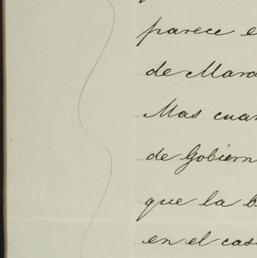 parece e
de Mara
Mas cuan
de Gobiern
que la b
en el cas